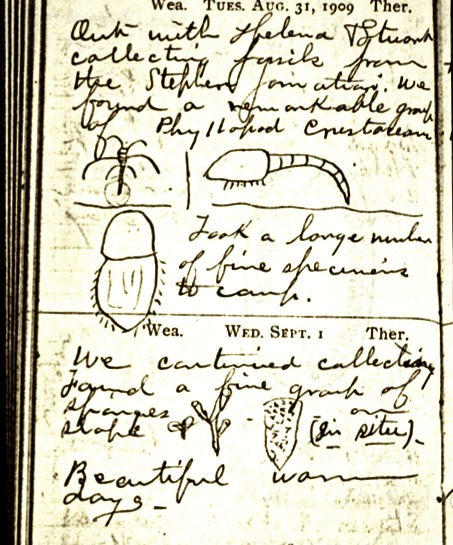 Wea. TUES. AUG. 31, 1909 Ther.
Out with Helena & Stuart
collecting fossils from
the Stephen formation. We
found a remarkable group
of Phyllopod Crustaceans.
Took a large number
of fine specimens
to camp.
Wea. WED. SEPT. 1 Ther.
We continued collecting
Found a fine group of
sponges on
slope (in situ).
Beautiful warm
days.